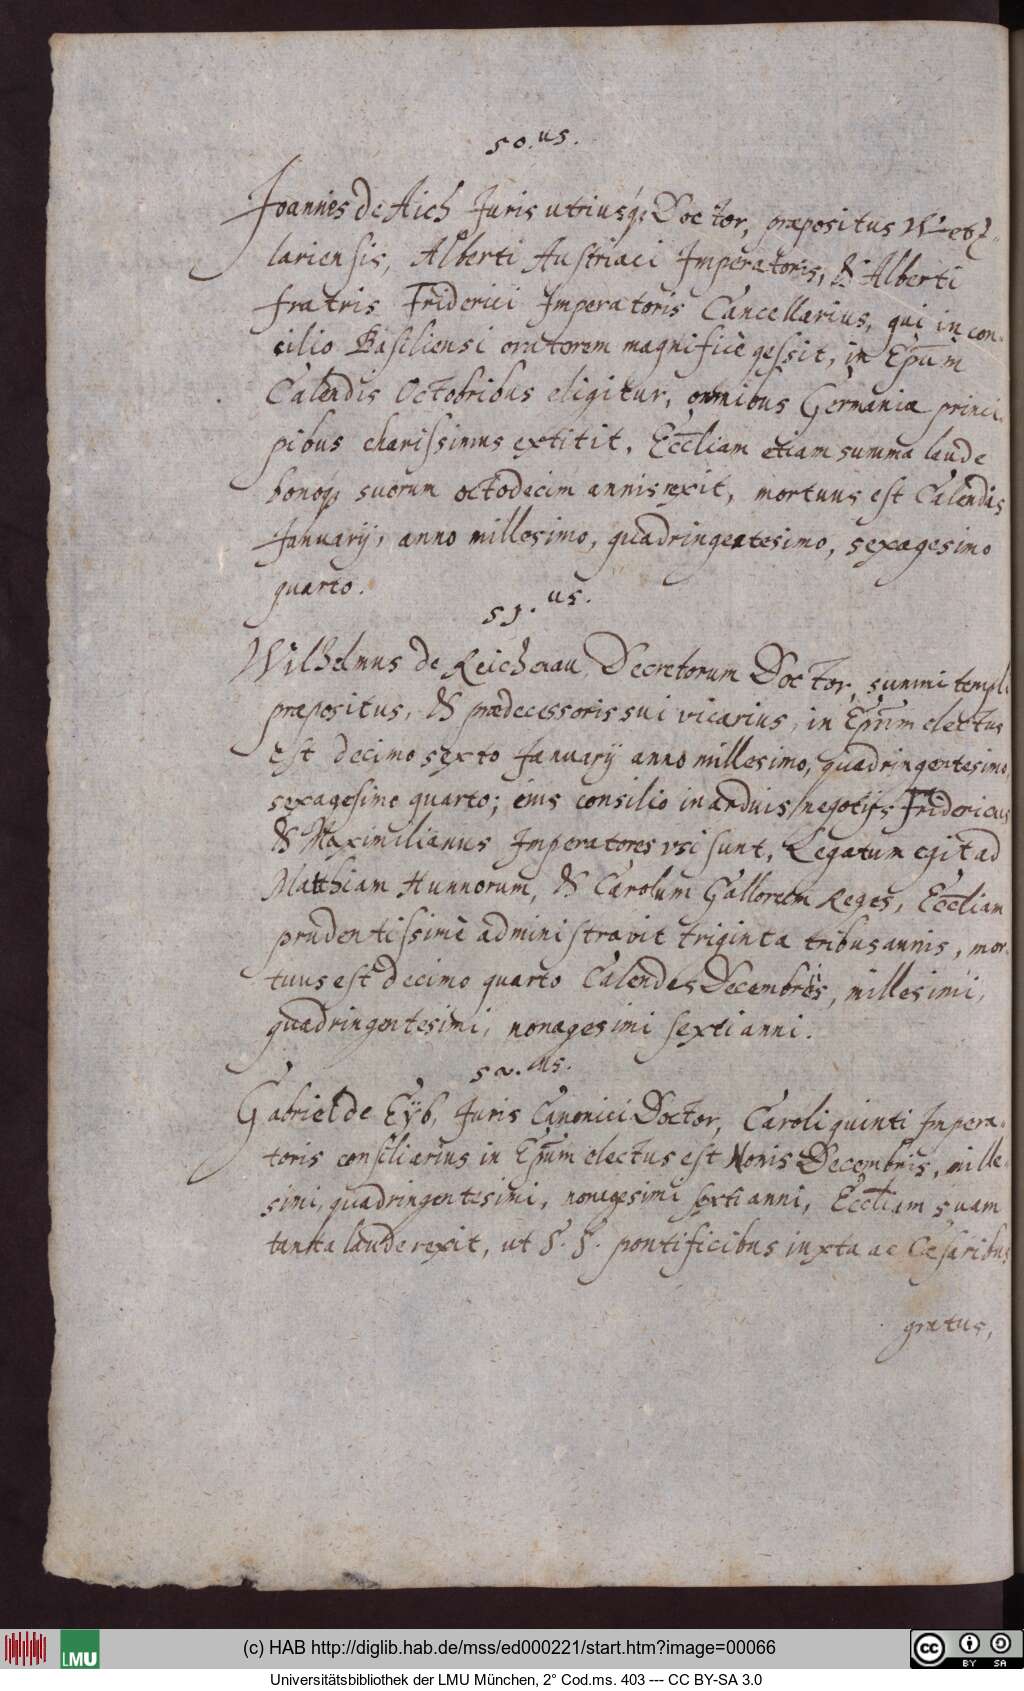 50.us.
Joannes de Aich Juris utriusq; Doctor, præpositus Wetz-
lariensis, Alberti Austriaci Imperatoris, & Alberti
fratris Friderici Imperatoris Cancellarius, qui in con-
cilio Basiliensi oratorem magnificè gessit, in Epūm
Calendis Octobribus eligitur, omnibus Germaniæ princi-
pibus charissimus extitit, Eccliam etiam summa laude
bonoq; suorum octodecim annis rexit, mortuus est Calendis
Januarij, anno millesimo, quadringentesimo, sexagesimo
quarto.
51.us.
Wilhelmus de Reichenau, Decretorum Doctor, summi templi
præpositus, & prædecessoris sui vicarius, in Epūm electus
est decimo sexto Januarij anno millesimo, quadringentesimo,
sexagesimo quarto; eius consilio in arduis negotijs Fridericus
& Maximilianus Imperatores vsi sunt, Legatum egit ad
Matthiam Hunnorum, & Carolum Gallorum Reges, Eccliam
prudentissimè administravit triginta tribus annis, mor-
tuus est decimo quarto Calendas Decembris, millesimi,
quadringentesimi, nonagesimi sexti anni.
52.us.
Gabriel de Eÿb, Juris Canonici Doctor, Caroli quinti Impera-
toris consiliarius in Epūm electus est Nonis Decembris, mille-
simi, quadringentesimi, nonagesimi sexti anni, Eccliam suam
tanta laude rexit, ut S. S. pontificibus iuxta ac Cæsaribus
gratus,
LMU
(c) HAB http://diglib.hab.de/mss/ed000221/start.htm?image=00066
cc BY SA
Universitätsbibliothek der LMU München, 2° Cod.ms. 403 --- CC BY-SA 3.0